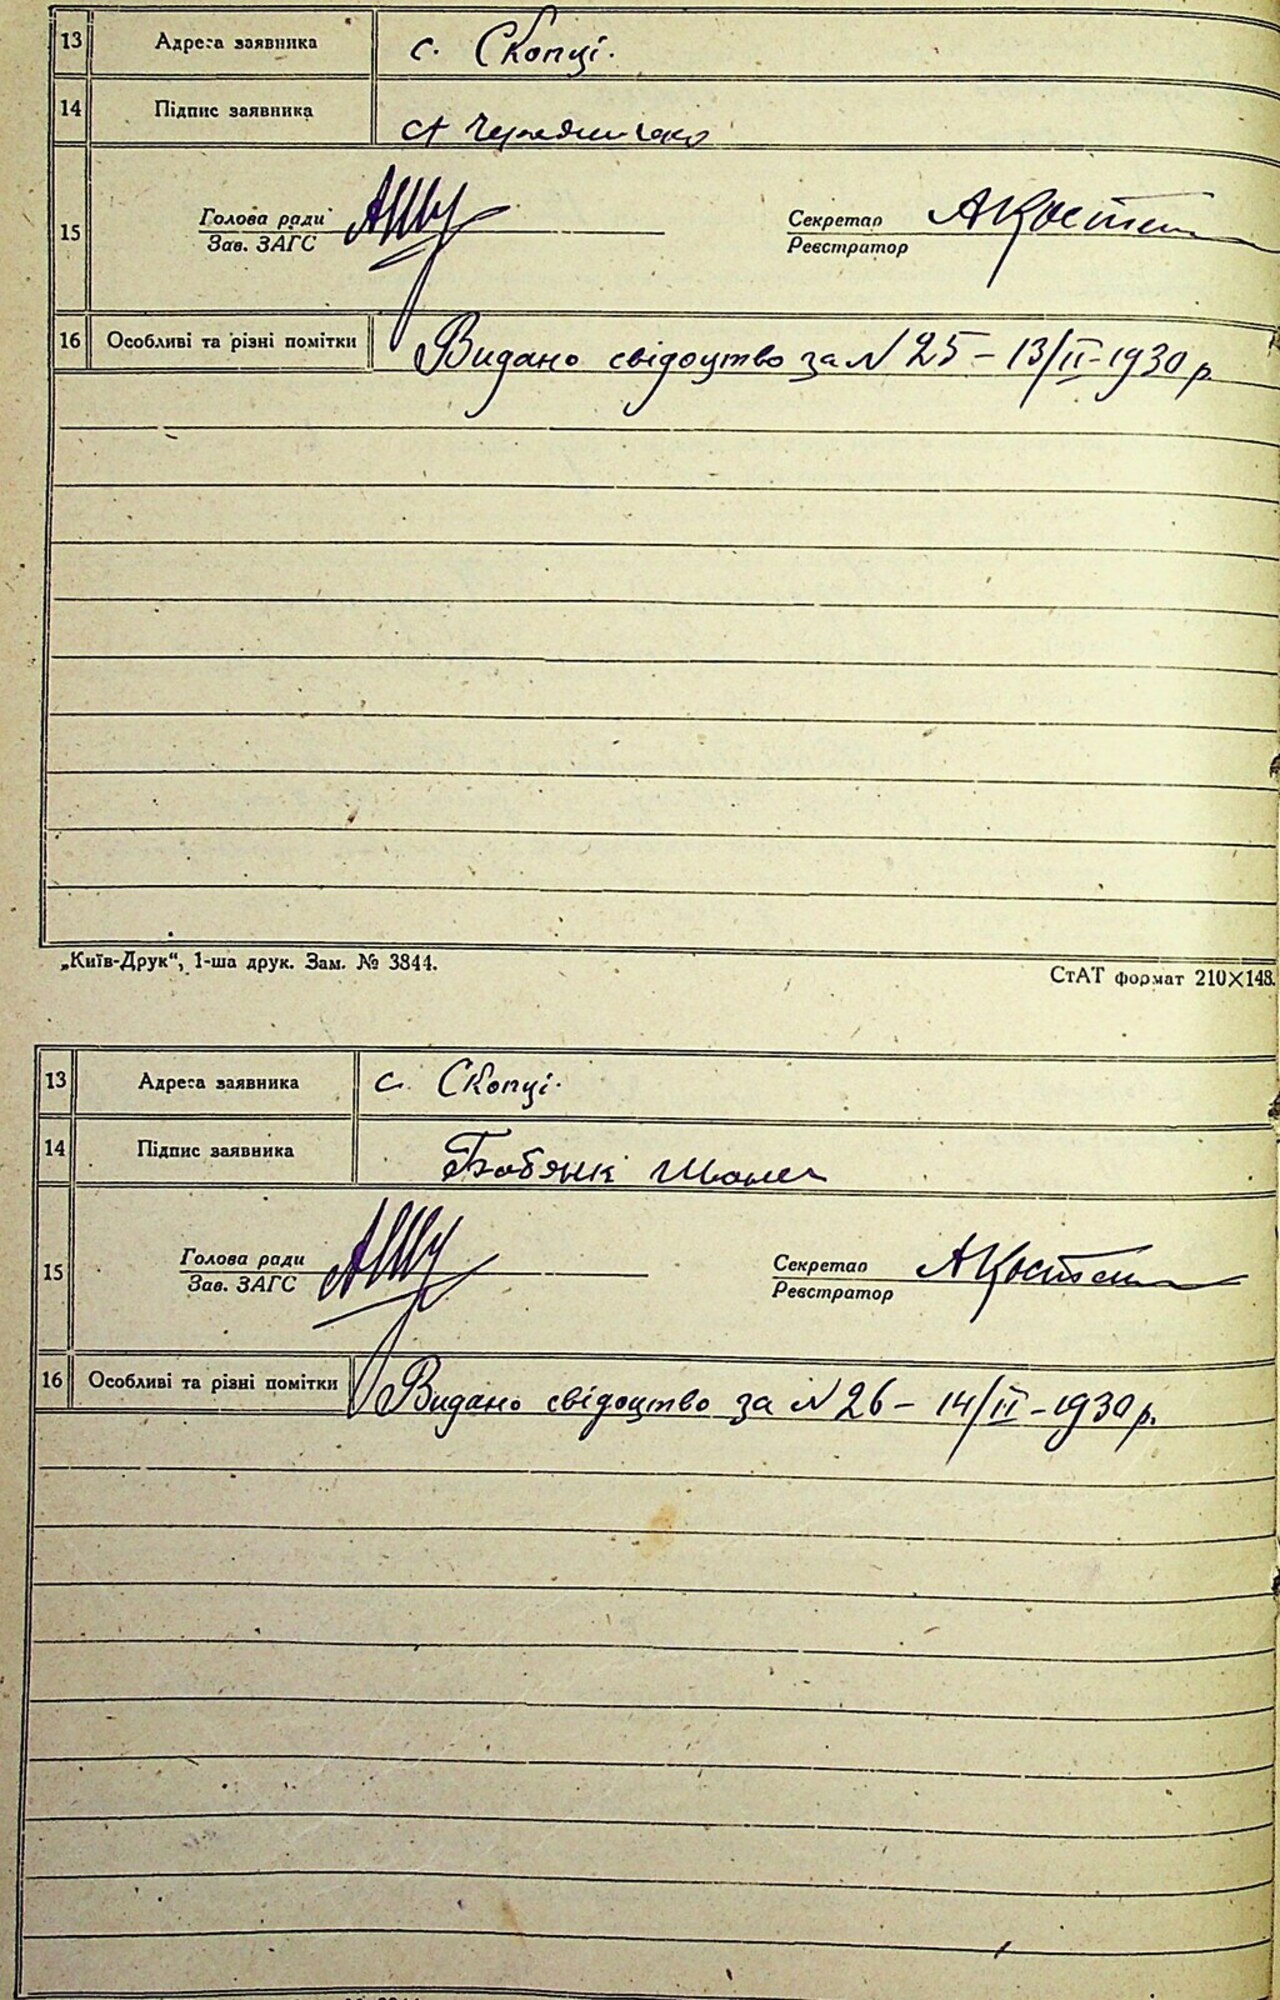 13 Адреса заявника с. Скопці.
14 Підпис заявника
15 Голова ради Секретар
Зав. ЗАГС Реєстратор
16 Особливі та різні помітки Видано свідоцтво за N 25 – 13/II – 1930 р.
„Київ-Друк“, 1-ша друк. Зам. № 3844.
СтАТ формат 210×148.
13 Адреса заявника с. Скопці.
14 Підпис заявника
15 Голова ради Секретар
Зав. ЗАГС Реєстратор
16 Особливі та різні помітки Видано свідоцтво за N 26 – 14/II – 1930 р.